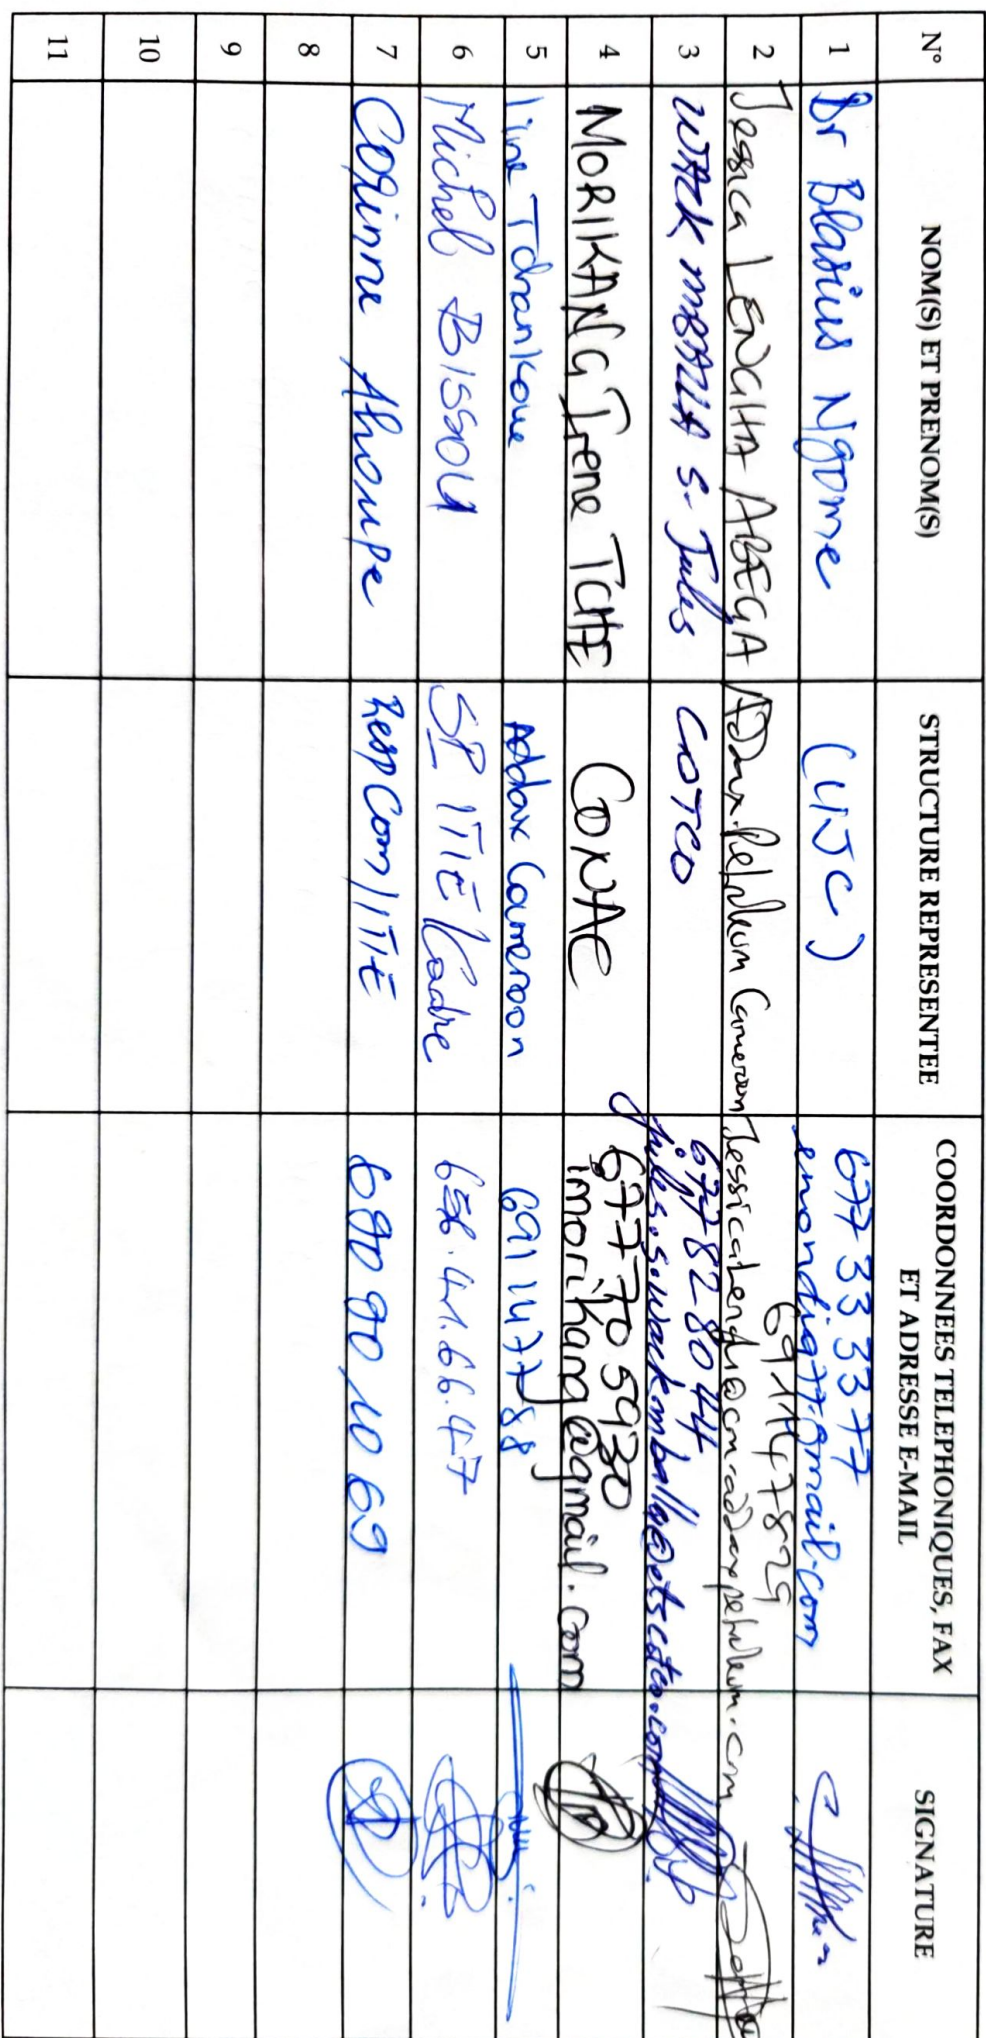 N° NOM(S) ET PRENOM(S) STRUCTURE REPRESENTEE COORDONNEES TELEPHONIQUES, FAX ET ADRESSE E-MAIL SIGNATURE
1 Dr Blasius Ngome (UJC) 677 33 33 77
emondig77@gmail.com
2 Jessica LENGHA ABEGA Addax Petroleum Cameroon 691147829
Jessica.lengha@cm.addaxpetroleum.com
3 WACK MBALLA S. Jules COTCO 677828044
jules.s.wackmballa@etscotco.com
4 MORIKANG Irene TCHE CONAC 677705930
imorikang@gmail.com
5 Line Tchankoue Addax Cameroon 691147788
6 Michel BISSOU SP ITIE/Cadre 656.41.66.47
7 Corinne Ahoupe Resp Com/ITIE 690 90 10 69
8
9
10
11